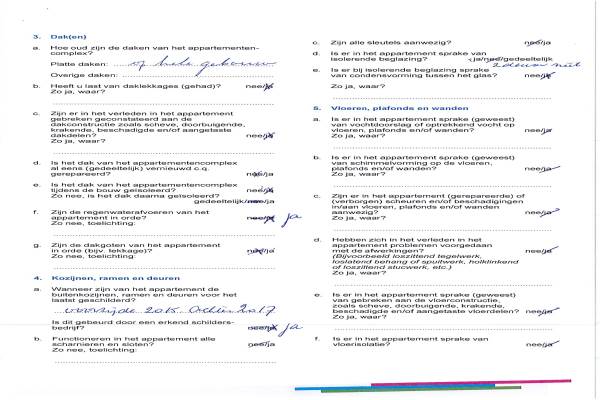 3. Dak(en)
a. Hoe oud zijn de daken van het appartementen-
complex?
Platte daken: of hele gebouw
Overige daken:
b. Heeft u last van daklekkages (gehad)? nee/ja
Zo ja, waar?
c. Zijn er in het verleden in het appartement
gebreken geconstateerd aan de
dakconstructie zoals scheve, doorbuigende,
krakende, beschadigde en/of aangetaste
dakdelen? nee/ja
Zo ja, waar?
d. Is het dak van het appartementencomplex
al eens (gedeeltelijk) vernieuwd c.q.
gerepareerd? nee/ja
e. Is het dak van het appartementencomplex
tijdens de bouw geïsoleerd? nee/ja
Zo nee, is het dak daarna geïsoleerd?
gedeeltelijk/nee/ja
f. Zijn de regenwaterafvoeren van het
appartement in orde? nee/ja ja
Zo nee, toelichting:
g. Zijn de dakgoten van het appartement
in orde (bijv. lekkage)? nee/ja
Zo nee, toelichting:
4. Kozijnen, ramen en deuren
a. Wanneer zijn van het appartement de
buitenkozijnen, ramen en deuren voor het
laatst geschilderd?
voorzijde 2015 2017
Is dit gebeurd door een erkend schilders-
bedrijf? nee/ja ja
b. Functioneren in het appartement alle
scharnieren en sloten? nee/ja
Zo nee, toelichting:
c. Zijn alle sleutels aanwezig? nee/ja
d. Is er in het appartement sprake van
isolerende beglazing? ja/nee/gedeeltelijk
e. Is er bij isolerende beglazing sprake 2 deuren niet
van condensvorming tussen het glas? nee/ja
Zo ja, waar?
5. Vloeren, plafonds en wanden
a. Is er in het appartement sprake (geweest)
van vochtdoorslag of optrekkend vocht op
vloeren, plafonds en/of wanden? nee/ja
Zo ja, waar?
b. Is er in het appartement sprake (geweest)
van schimmelvorming op de vloeren,
plafonds en/of wanden? nee/ja
Zo ja, waar?
c. Zijn er in het appartement (gerepareerde) of
(verborgen) scheuren en/of beschadigingen
in/aan vloeren, plafonds en/of wanden
aanwezig? nee/ja
Zo ja, waar?
d. Hebben zich in het verleden in het
appartement problemen voorgedaan
met de afwerkingen? nee/ja
(Bijvoorbeeld loszittend tegelwerk,
loslatend behang of spuitwerk, holklinkend
of loszittend stucwerk, etc.)
Zo ja, waar?
e. Is er in het appartement sprake (geweest)
van gebreken aan de vloerconstructie,
zoals scheve, doorbuigende, krakende,
beschadigde en/of aangetaste vloerdelen? nee/ja
Zo ja, waar?
f. Is er in het appartement sprake van
vloerisolatie? nee/ja